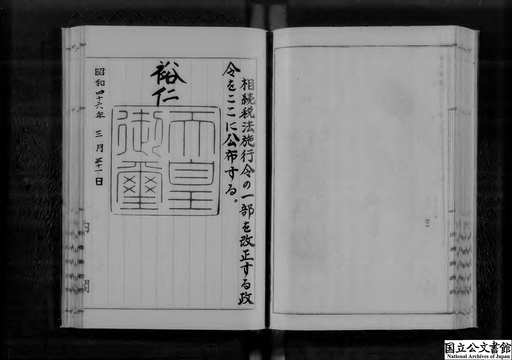 相続税法施行令の一部を改正する政
令をここに公布する。
裕仁
天皇
御璽
昭和四十六年三月三十一日
内閣
国立公文書館
National Archives of Japan